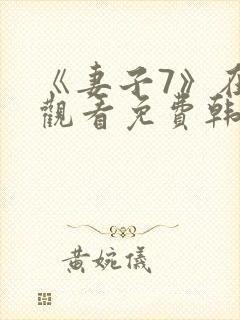 《妻子7》在
觀看免費韩
黃婉儀